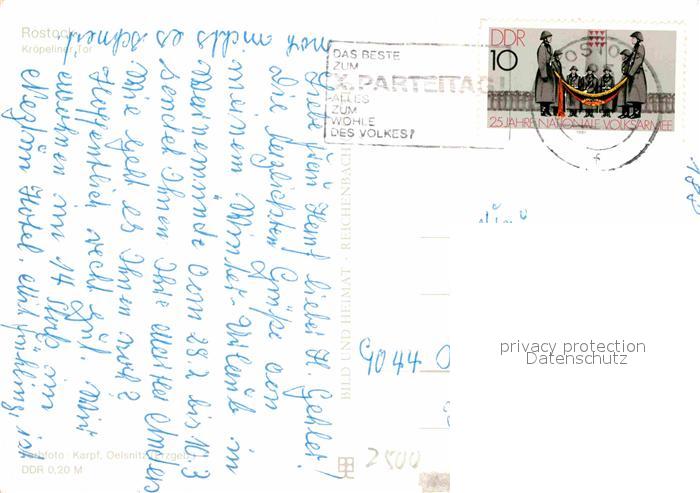 Rostock
Kröpeliner Tor
DAS BESTE
ZUM
X. PARTEITAG!
ALLES
ZUM
WOHLE
DES VOLKES!
DDR
10
25 JAHRE NATIONALE VOLKSARMEE
Liebe Frau Hempf lieber H. Gehler!
Die herzlichsten Grüße von
meinem Winter-Urlaub in
Warnemünde vom 28.2 bis 10.3
sendet Ihnen Ihre
Wie geht es Ihnen noch?
Hoffentlich recht gut. Wir
wohnen im 14 Stock im
Neptun Hotel. ist
noch nichts es schneit
BILD UND HEIMAT · REICHENBACH
9044
2500
privacy protection
Datenschutz
Farbfoto: Karpf, Oelsnitz/Erzgeb.
DDR 0,20 M